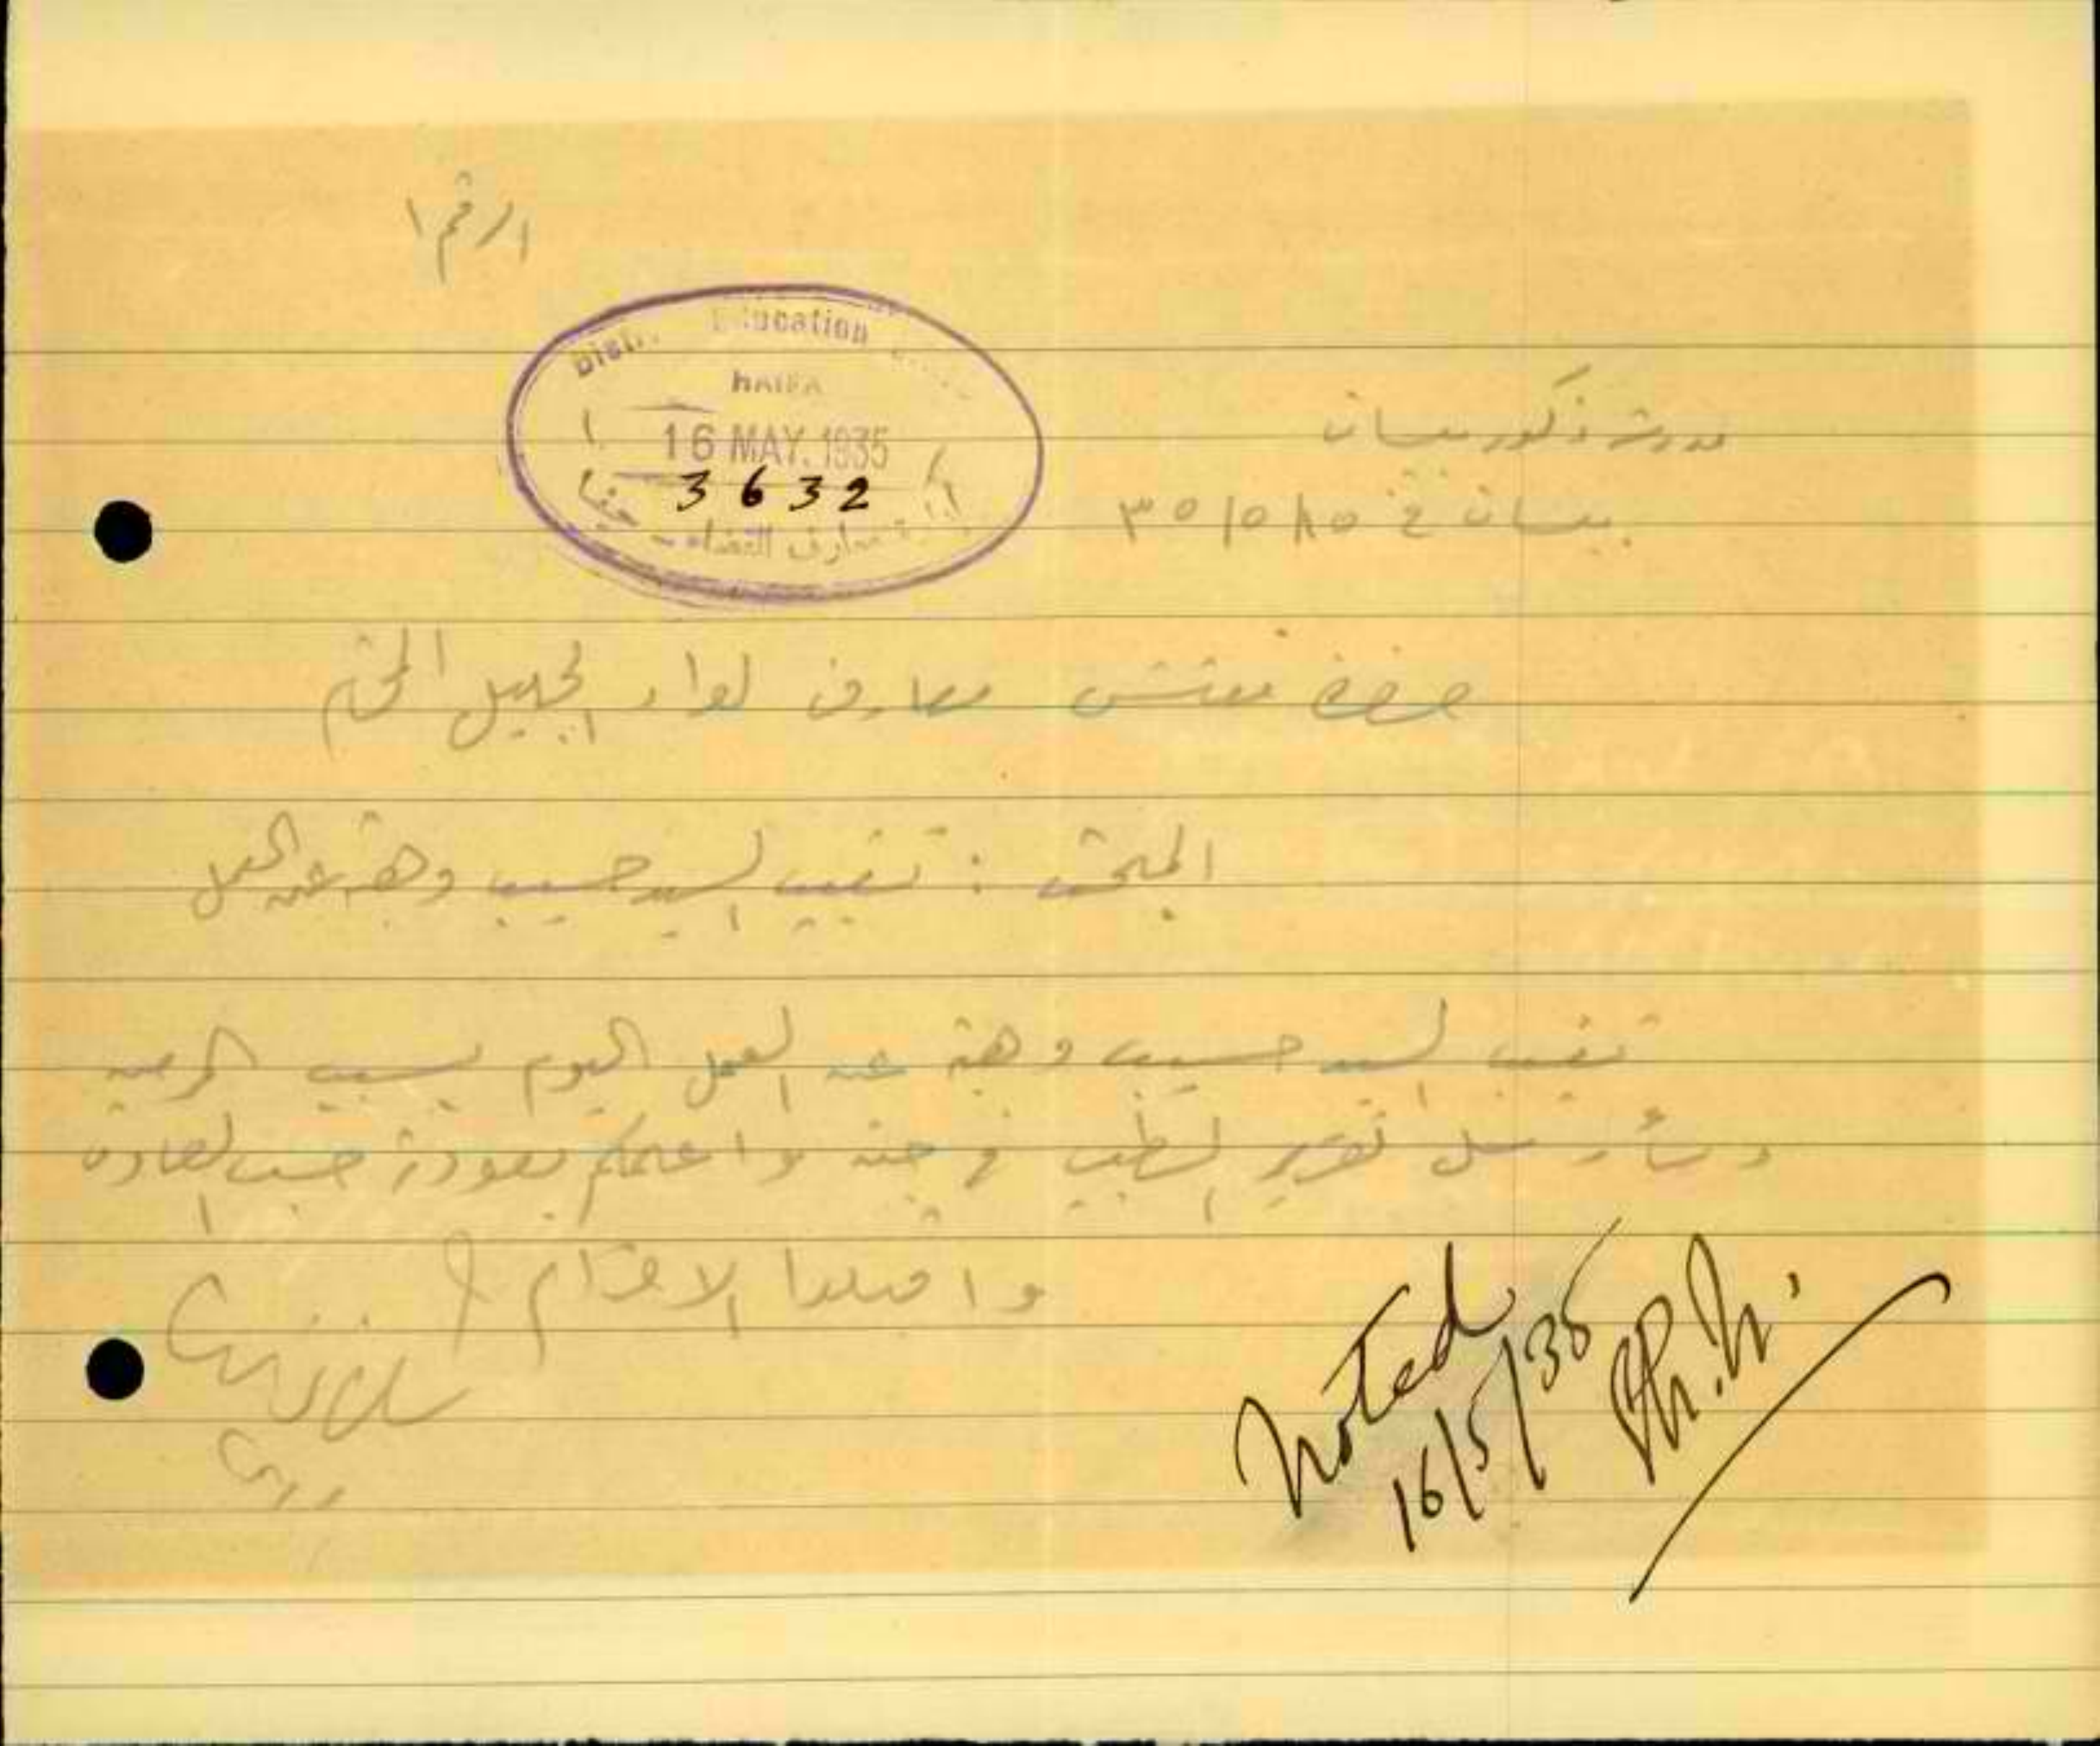 الرقم ١
Education
HAIFA
16 MAY. 1935
3632
معارف القضاء - حيفا
مدرسة ذكور بيسان
بيسان في ١٥/٥/٣٥
حضرة مفتش معارف لواء الجليل المحترم
المبحث : تغيب السيد حسيب وهبه عن العمل
تغيب السيد حسيب وهبه عن العمل اليوم بسبب المرض
وسأرسل تقرير الطبيب في حينه واعلمكم بعودته حسب العادة
واقبلوا الاحترام
Noted
16/5/35